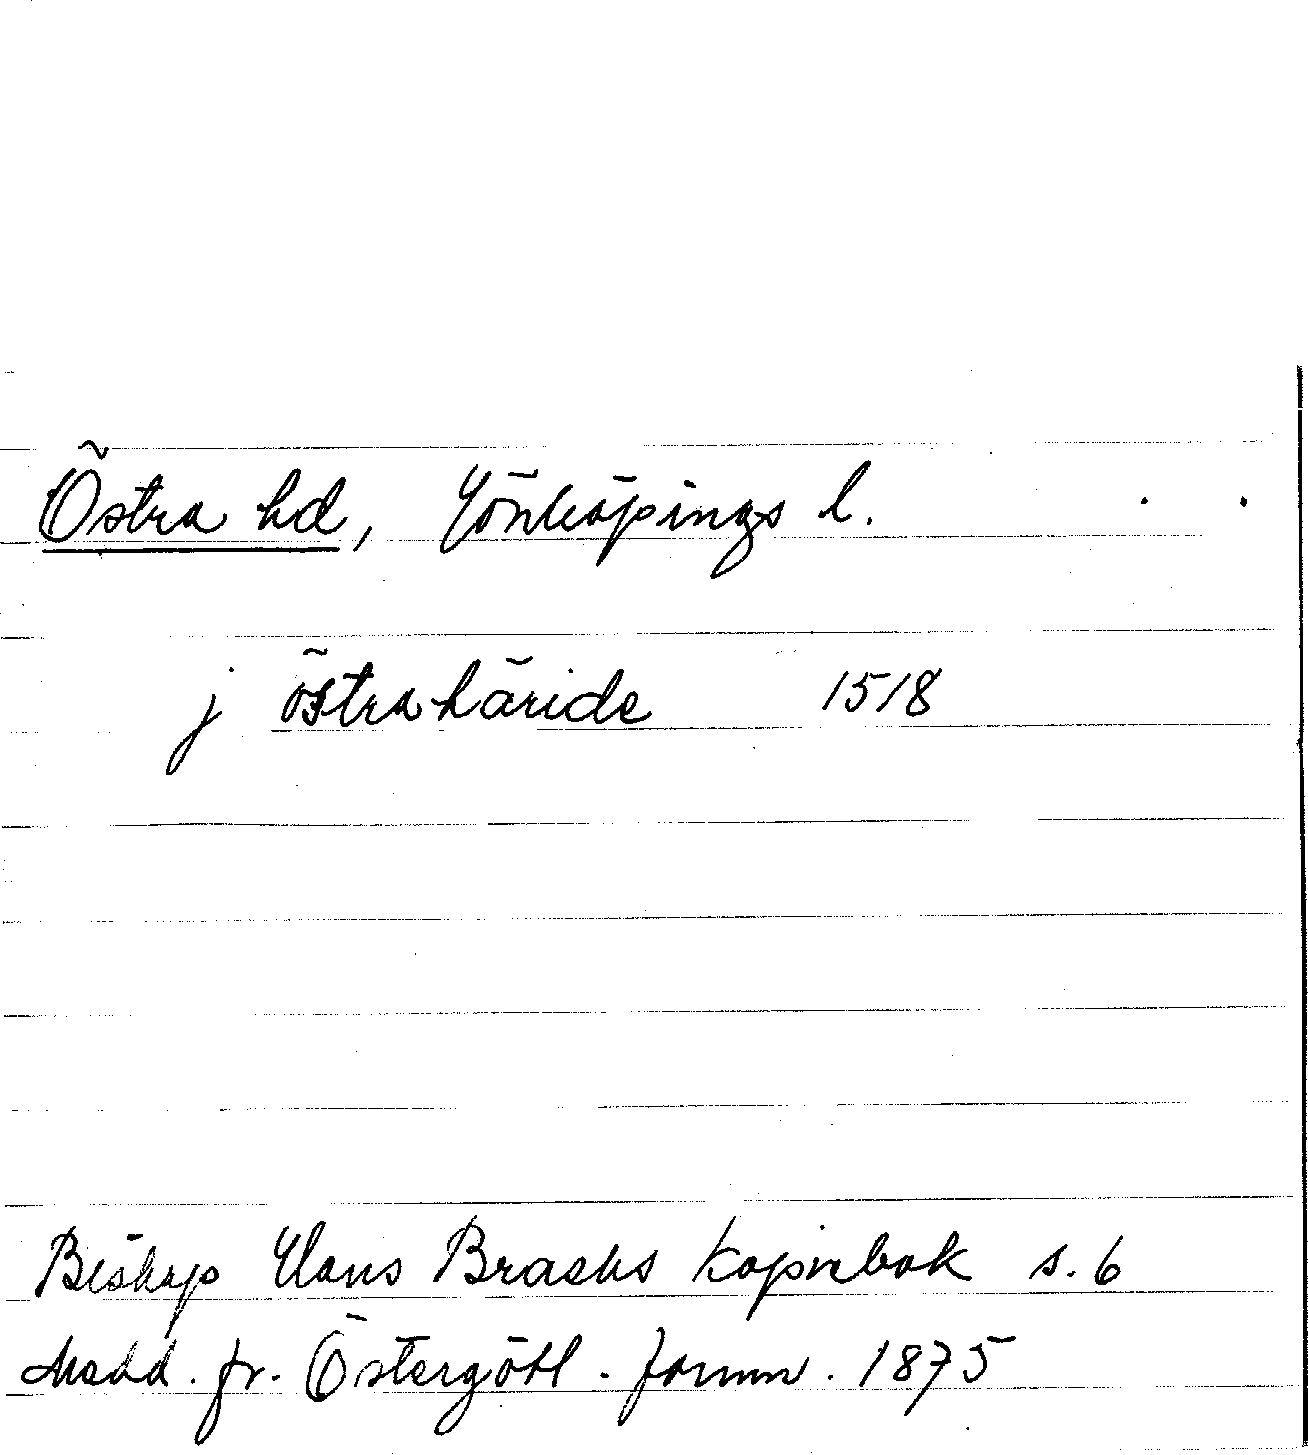 Östra hd, Jönköpings l.
j östra häride 1518
Biskop Hans Brasks kopiebok s. 6
Medd. fr. Östergötl. fornm. 1875